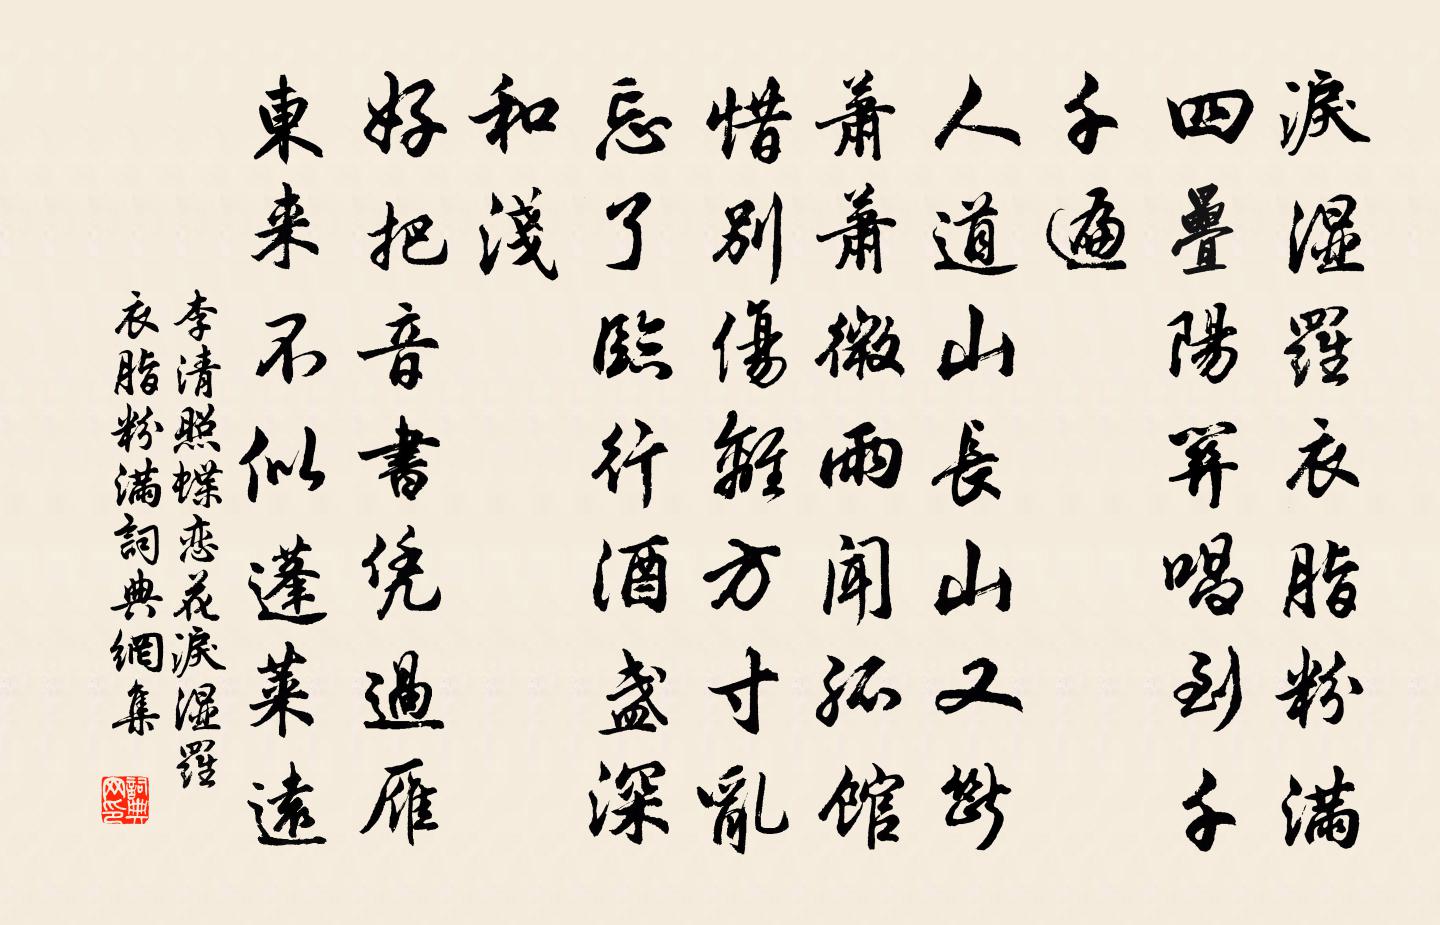 淚湿羅衣脂粉滿
四疊陽關唱到千
千遍
人道山長山又斷
蕭蕭微雨聞孤館
惜別傷離方寸亂
忘了臨行酒盞深
和淺
好把音書凭過雁
東来不似蓬萊遠
李清照蝶恋花淚湿羅
衣脂粉滿詞典網集
詞典
网印